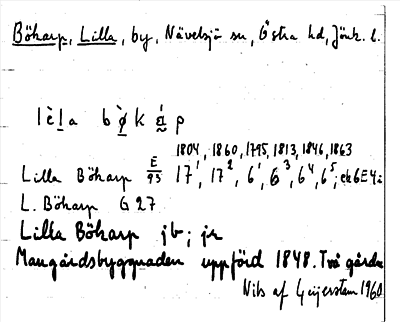 Böharp, Lilla, by, Nävelsjö sn, Östra hd, Jönk. l.
lèla bø̀káp
1804, 1860, 1795, 1813, 1846, 1863
Lilla Böharp E/93 17¹, 17², 6¹, 6³, 6⁴, 6⁵; ek6E4a
L. Böharp G 27
Lilla Böharp jb; jr
Mangårdsbyggnaden uppförd 1848. Två gårdar
Nils af Geijerstam 1960